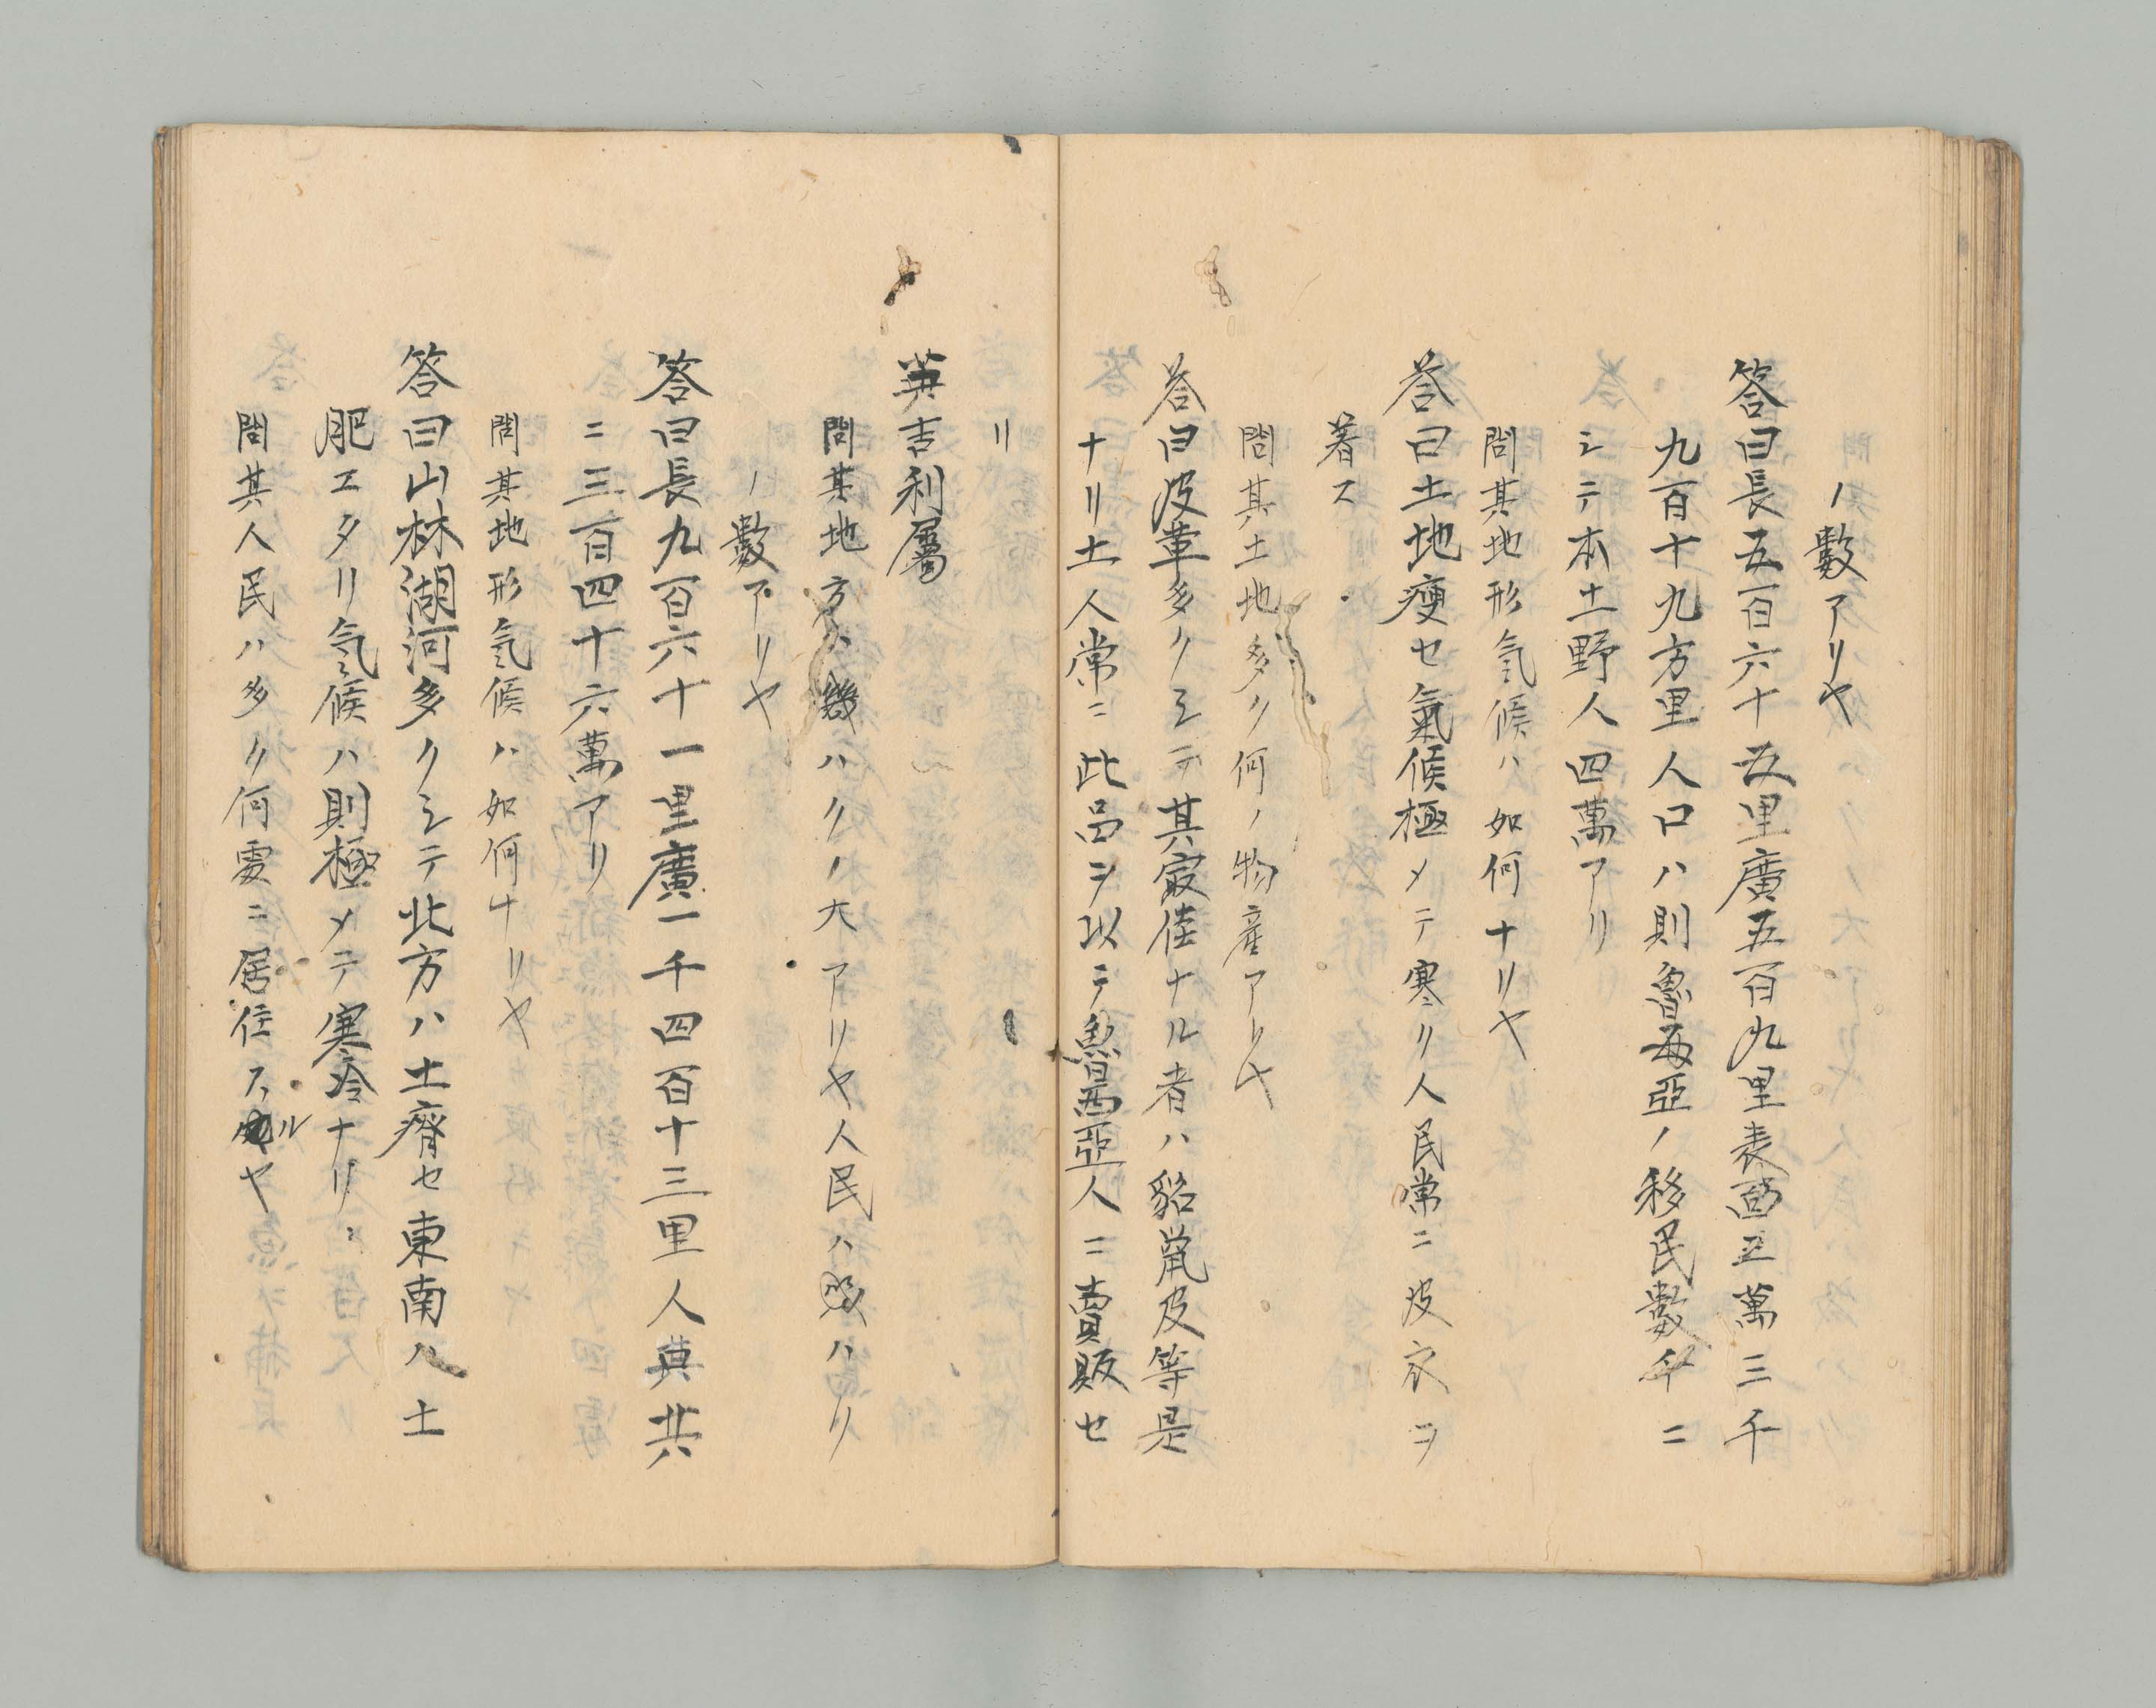 ノ數アリヤ
答曰長五百六十五里廣五百九里表面五萬三千
九百十九方里人口ハ則魯西亞ノ移民數千ニ
シテ本土野人四萬アリ
問其地形氣候ハ如何ナリヤ
答曰土地瘦セ氣候極メテ寒リ人民常ニ皮衣ヲ
著ス
問其土地多ク何ノ物產アリヤ
答曰皮革多クシテ其寂佳ナル者ハ貂鼠皮等是
ナリ土人常ニ此品ヲ以テ魯西亞人ニ賣販セ
リ
英吉利屬
問其地方ハ幾ハクノ大アリヤ人民ハハリ
ノ數アリヤ
答曰長九百六十一里廣一千四百十三里人典共
ニ三百四十六萬アリ
問其地形気候ハ如何ナリヤ
答曰山林湖河多クシテ北方ハ土瘠セ東南ハ土
肥エタリ気候ハ則極メテ寒冷ナリ
問其人民ハ多ク何處ニ居住スルヤ